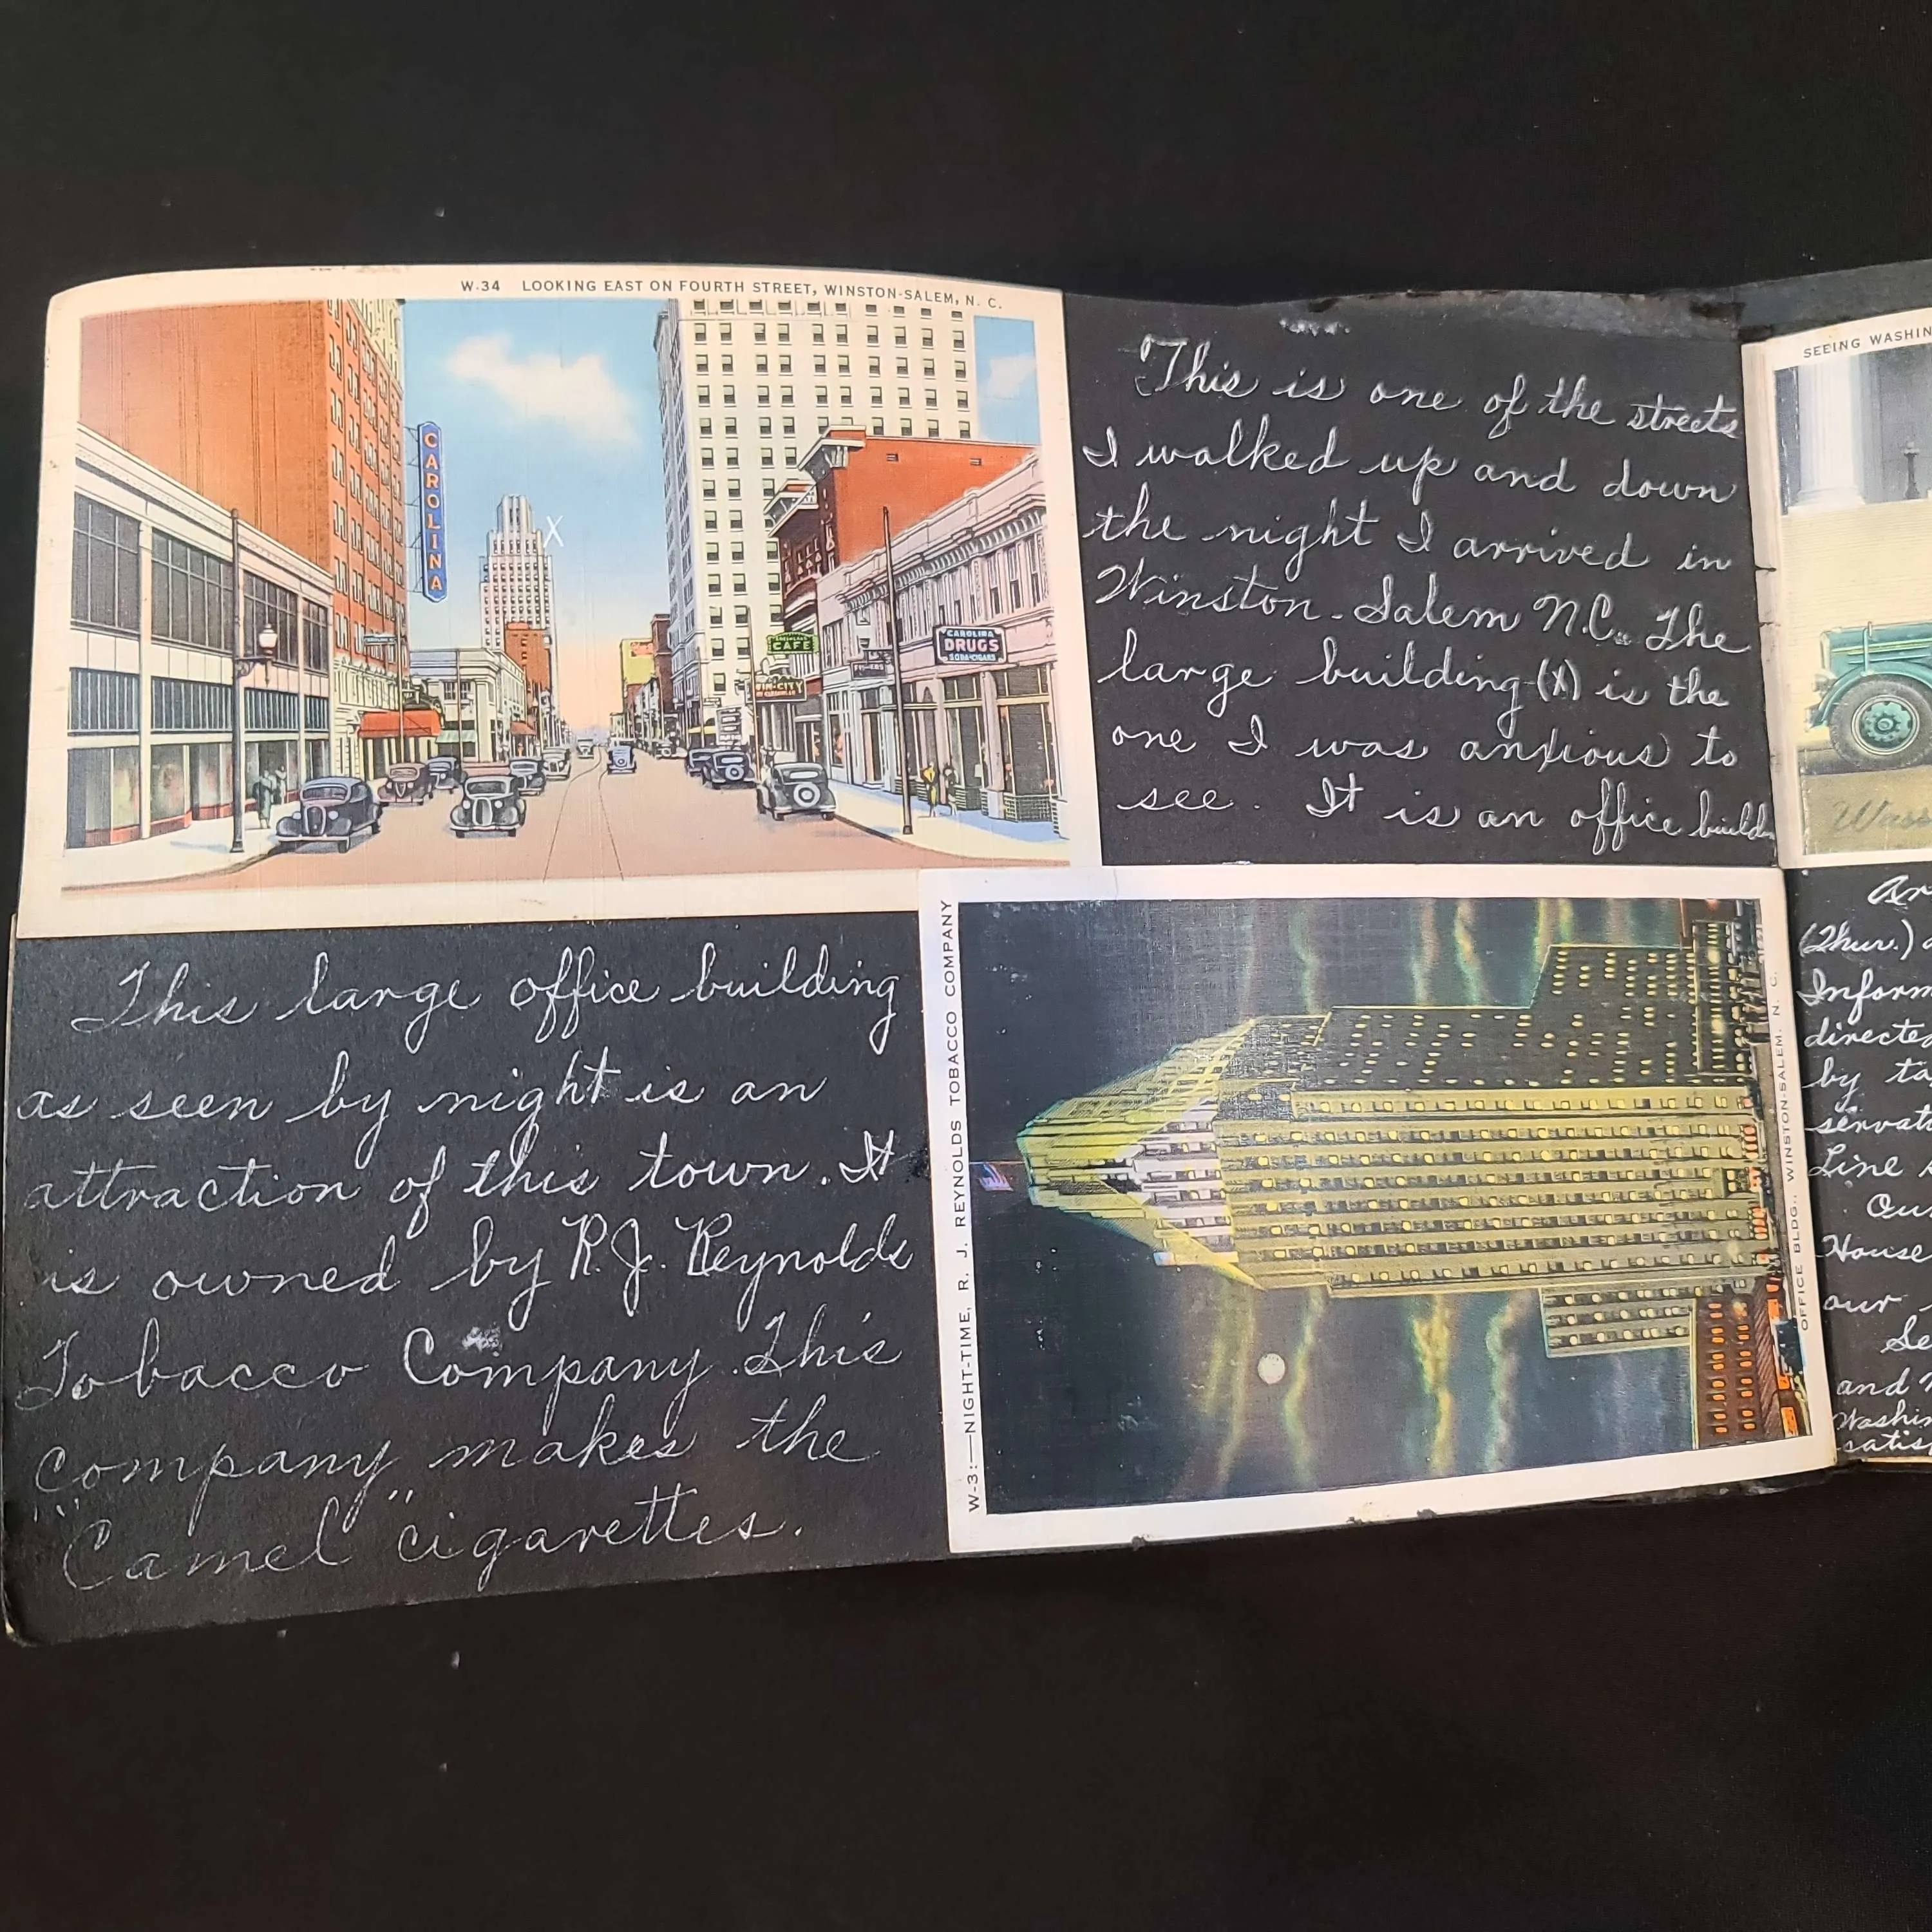 W-34 LOOKING EAST ON FOURTH STREET, WINSTON-SALEM, N. C.
CAROLINA
CAFE
TWIN-CITY
CAROLINA
DRUGS
SODA-CIGARS
X
This is one of the streets
I walked up and down
the night I arrived in
Winston-Salem N.C.. The
large building (X) is the
one I was anxious to
see. It is an office buildn
This large office building
as seen by night is an
attraction of this town. It
is owned by R.J. Reynolds
Tobacco Company. This
company makes the
"Camel" cigarettes.
W-3:—NIGHT-TIME, R. J. REYNOLDS TOBACCO COMPANY
OFFICE BLDG., WINSTON-SALEM, N. C.
SEEING WASHIN
Wash
Ar
(Thur.) a
Inform
directed
by ta
servat
Line
Our
House
our
Se
and
Washin
satis